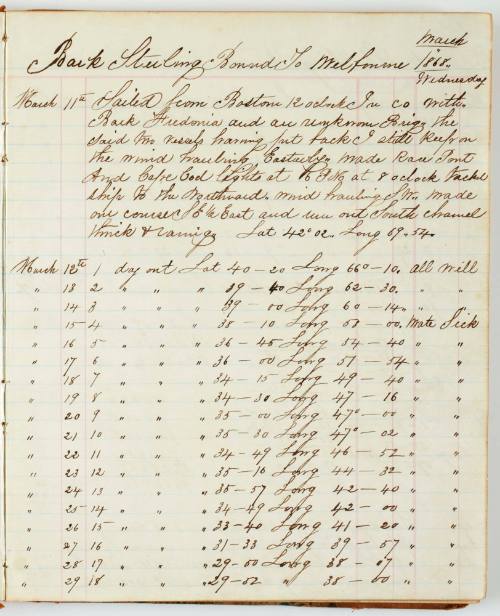 March
1868.
Bark Sterling Bound To Melbourne
Wednesday
March 11th Sailed from Boston 12 oclock In co with
Bark Fredonia and an unknown Brig, the
said two vessels having put back I still keep on
the wind hauling Easterly. made Race Pont
And Cape Cod lights at 6 PM at 8 oclock tacked
ship to the Northward. wind hauling S.W. made
our course S E 1/2 East and run out South channel
thick & raning. Lat 42° 02. Long 69. 54.
March 12th 1 day out Lat 40 - 20 Long 66° - 10. all well
" 13 2 " " " 39 - 40 Long 62 - 30. " "
" 14 3 " " 39 - 00 Long 60 - 14. " "
" 15 - 4 " " " 38 - 10 Long 58 - 00. Mate Sick
" 16 5 " " " 36 - 45 Long 54 - 40 " "
" 17 6 " " " 36 - 00 Long 51 - 54 " "
" 18 7 " " " 34 - 15 Long 49 - 40 " "
" 19 8 " " " 34 - 30 Long 47 - 16 " "
" 20 9 " " " 35 - 00 Long 47° - 00 " "
" 21 10 " " " 35 - 30 Long 47° - 02 " "
" 22 11 " " " 34 - 49 Long 46 - 52 " "
" 23 12 " " " 35 - 16 Long 44 - 32 " "
" 24 13 " " " 35 - 57 Long 42 - 40 " "
" 25 - 14 " " " 34 - 49 Long 42 - 00 " "
" 26 15 " " " 33 - 40 Long 41 - 20 " "
" 27 16 " " " 31 - 33 Long 39 - 57 " "
" 28 - 17 " " " 29 - 00 Long 38 - 07 " "
" 29 18 " " " 29 - 02 " 38 - 00 " "